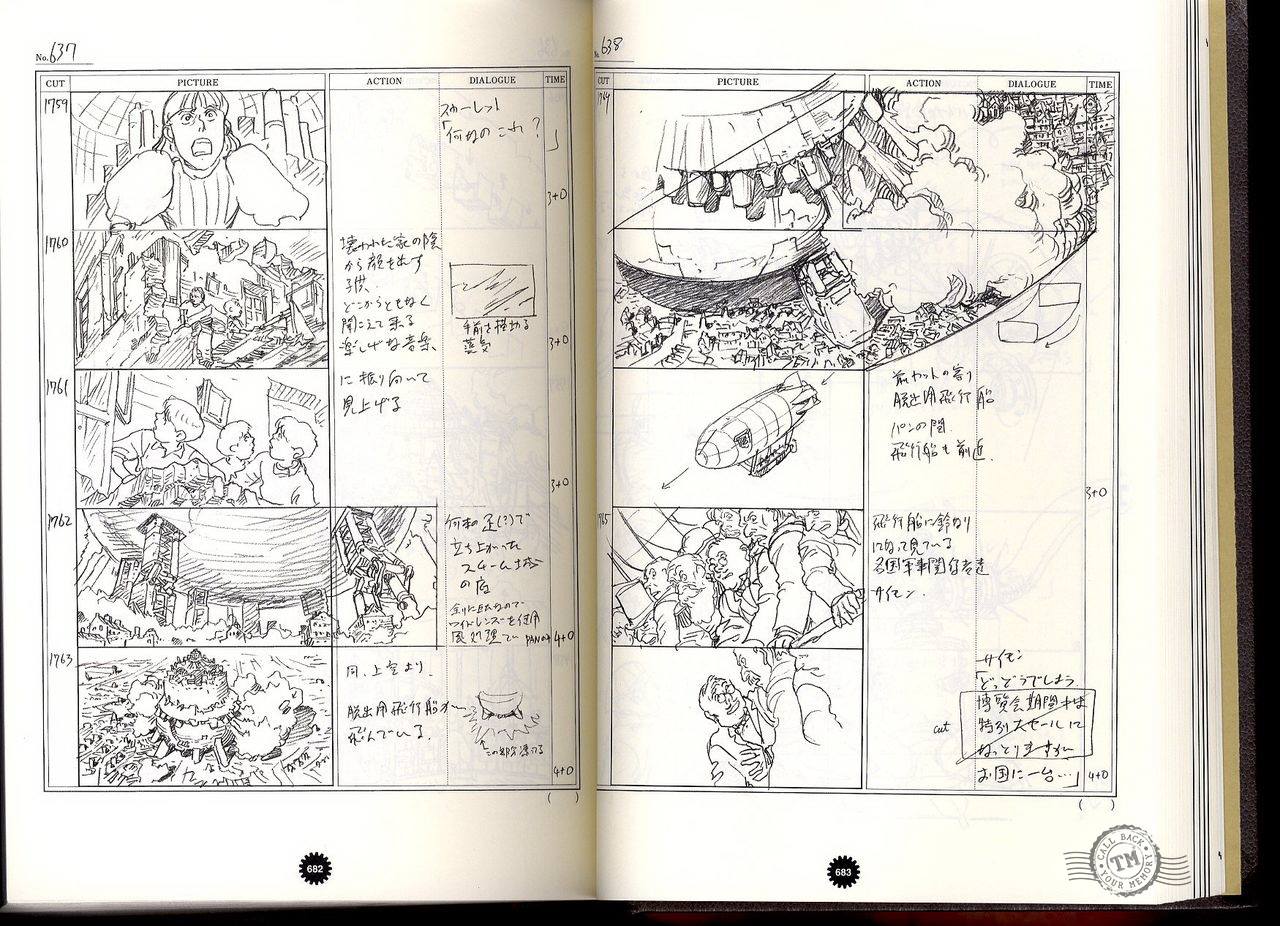 No. 637
CUT PICTURE ACTION DIALOGUE TIME
1759
スカーレット
「何なの これ?
」
3+0
1760
壊われた家の陰
から顔を出す
子供.
どこからともなく
聞こえて来る
楽しげな音楽
手前を横切る
蒸気
3+0
1761
に振り向いて
見上げる
3+0
1762
何本の足(?)で
立ち上がった
スチーム塔
の底
PAN
4+0
1763
同、上空より.
脱出用飛行船が
飛んでいる.
4+0
( )
682
No. 638
CUT PICTURE ACTION DIALOGUE TIME
1764
前カットの寄り
脱出用飛行船
パンの間
飛行船も前進.
3+0
1765
飛行船に鈴なり
になって見ている
各国軍事関係者達
サイモン.
サイモン
「どっどうでしょう
博覧会期間中は
特別大セールに
なっとりますが
cut
お国に一台…」
4+0
( )
683
CALL BACK
TM
YOUR MEMORY